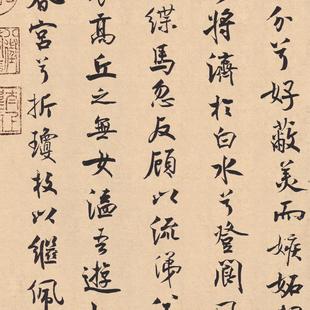 分兮好蔽美而嫉妬
將濟於白水兮登閬
緤馬忽反顧以流涕
高丘之無女溘吾遊
宮兮折瓊枝以繼佩